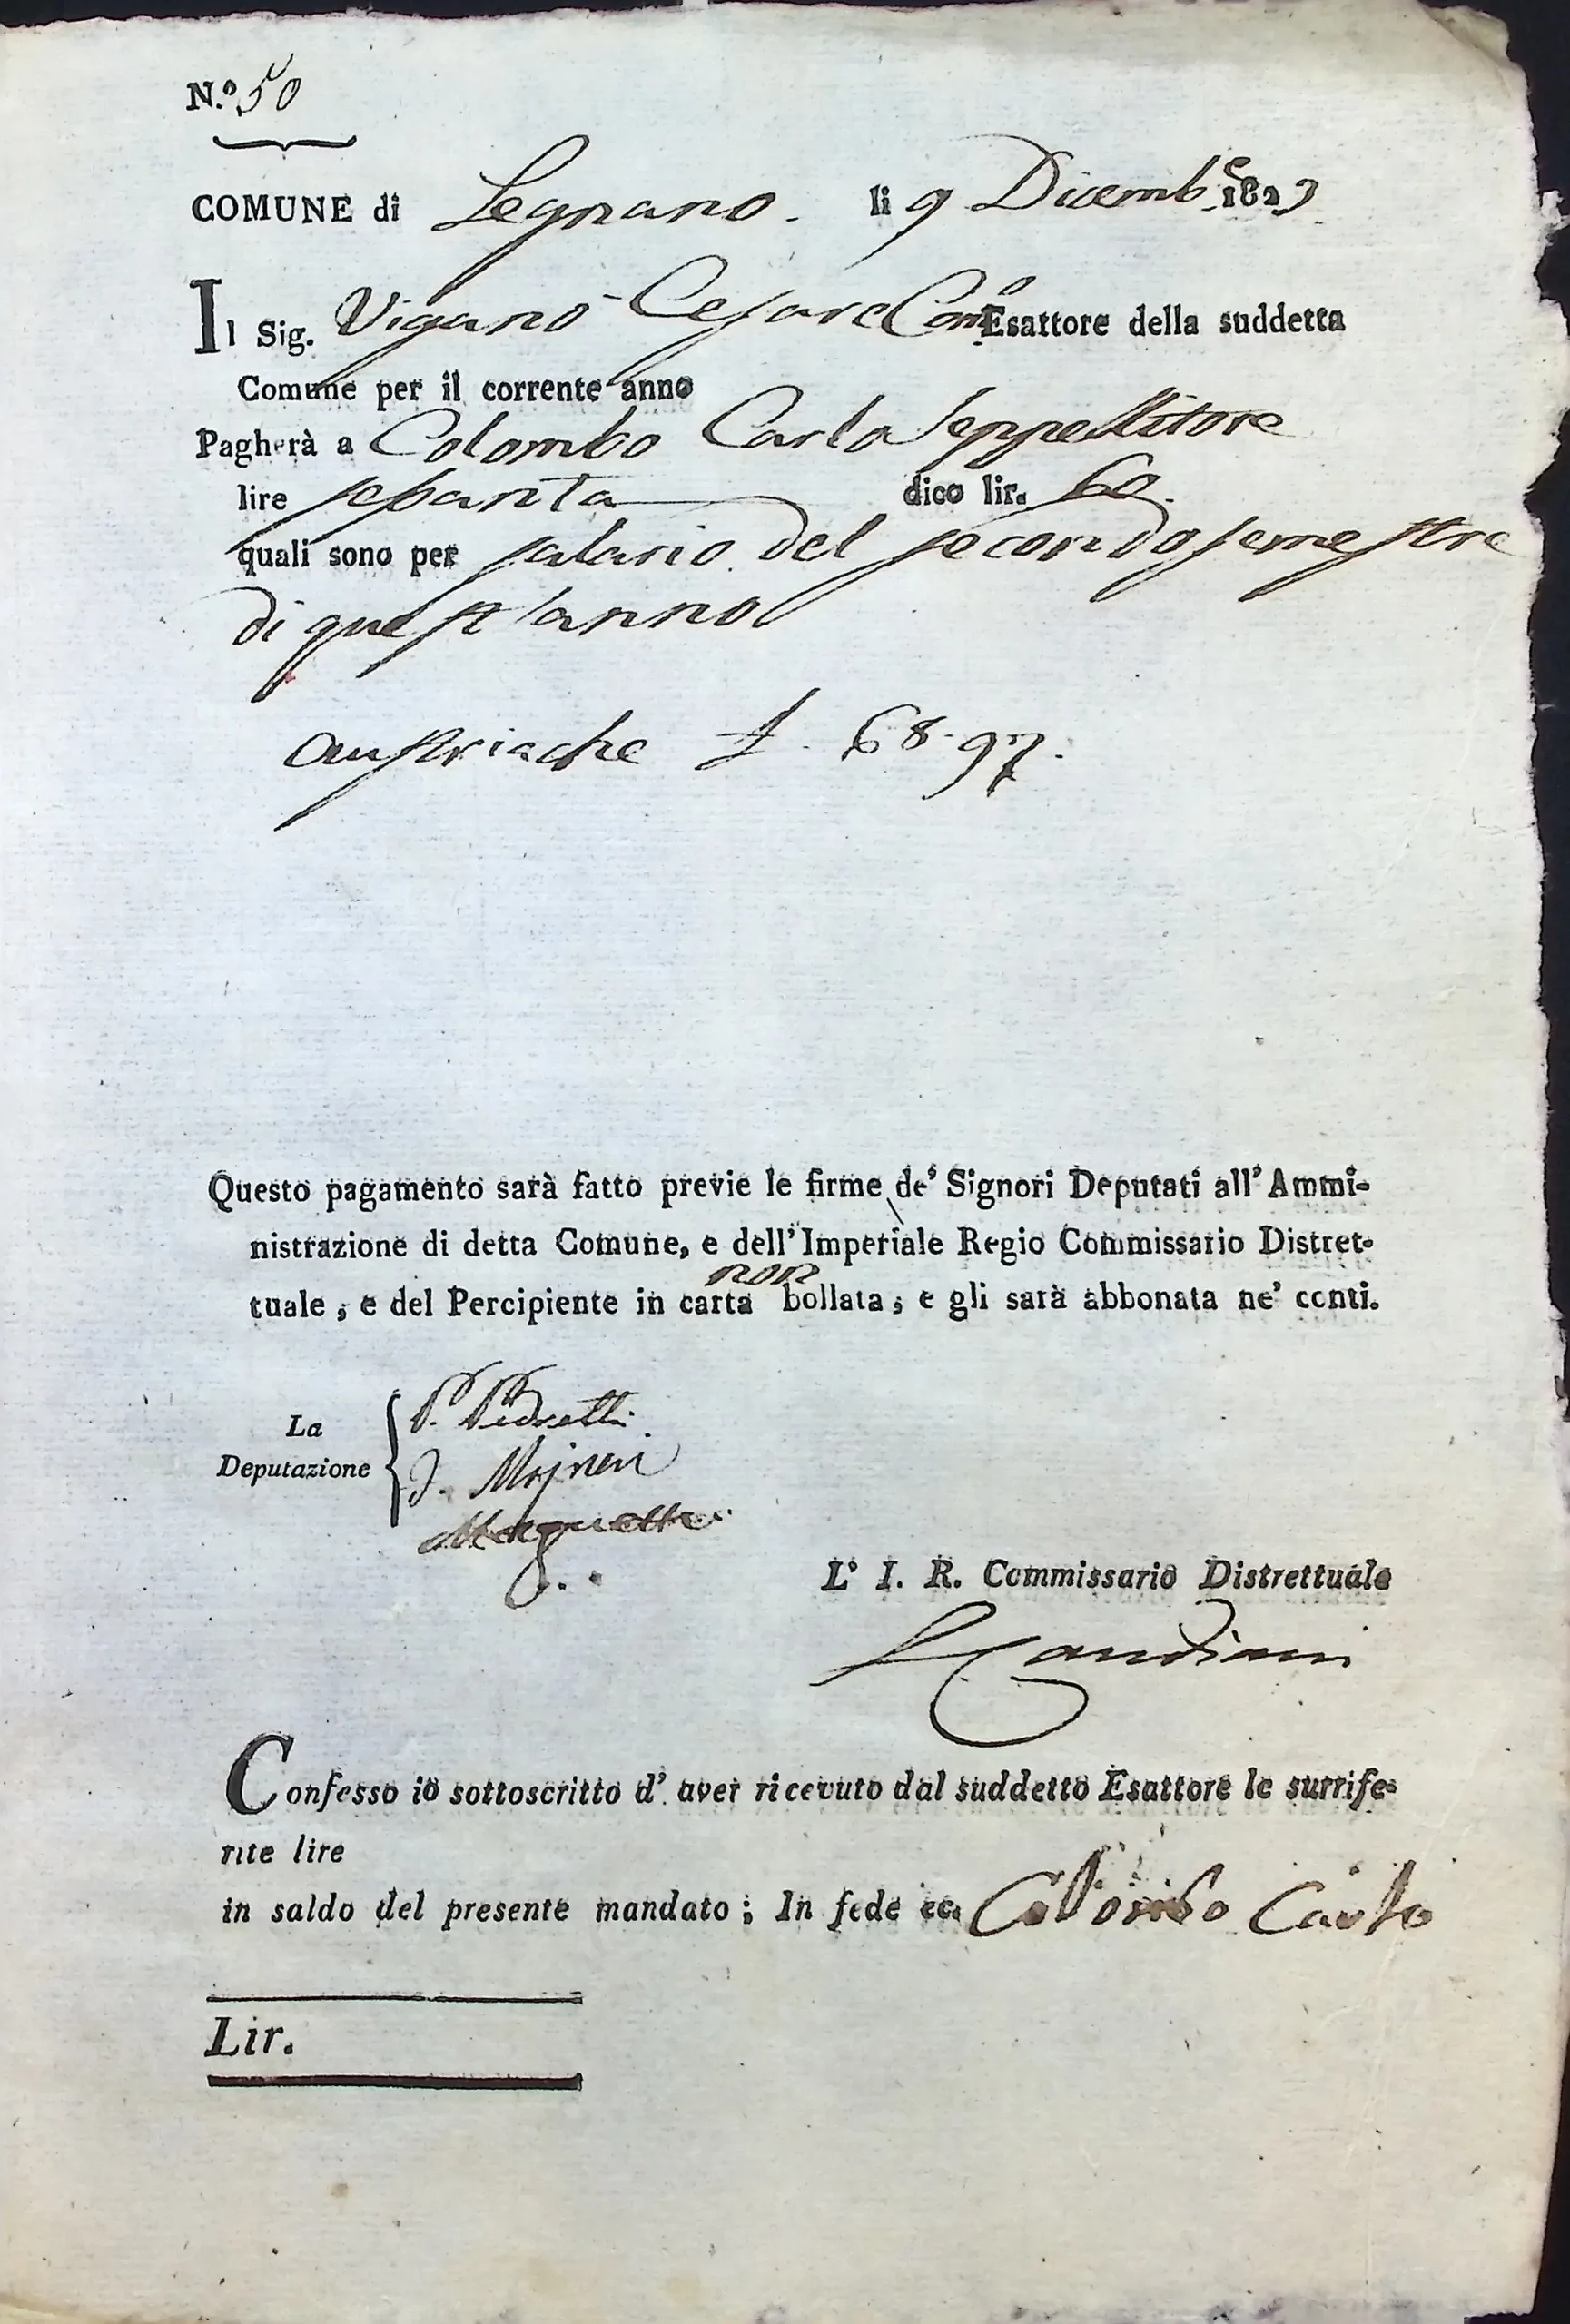 N.º 50
COMUNE di Legnano. li 9 Dicemb.e 1823
Il Sig. Viganò Cesare Com.o Esattore della suddetta
Comune per il corrente anno
Pagherà a Colombo Carlo Seppellitore
lire sessanta dico lir. 60.
quali sono per salario del secondo semestre
di quest'anno
austriache £. 68.97.
Questo pagamento sarà fatto previe le firme de' Signori Deputati all'Ammi-
nistrazione di detta Comune, e dell'Imperiale Regio Commissario Distret-
tuale, e del Percipiente in carta non bollata, e gli sarà abbonata ne' conti.
La
Deputazione
P. Pedretti
L' I. R. Commissario Distrettuale
Candiani
Confesso io sottoscritto d'aver ricevuto dal suddetto Esattore le surrife-
rite lire
in saldo del presente mandato; In fede ec. Colombo Carlo
Lir.